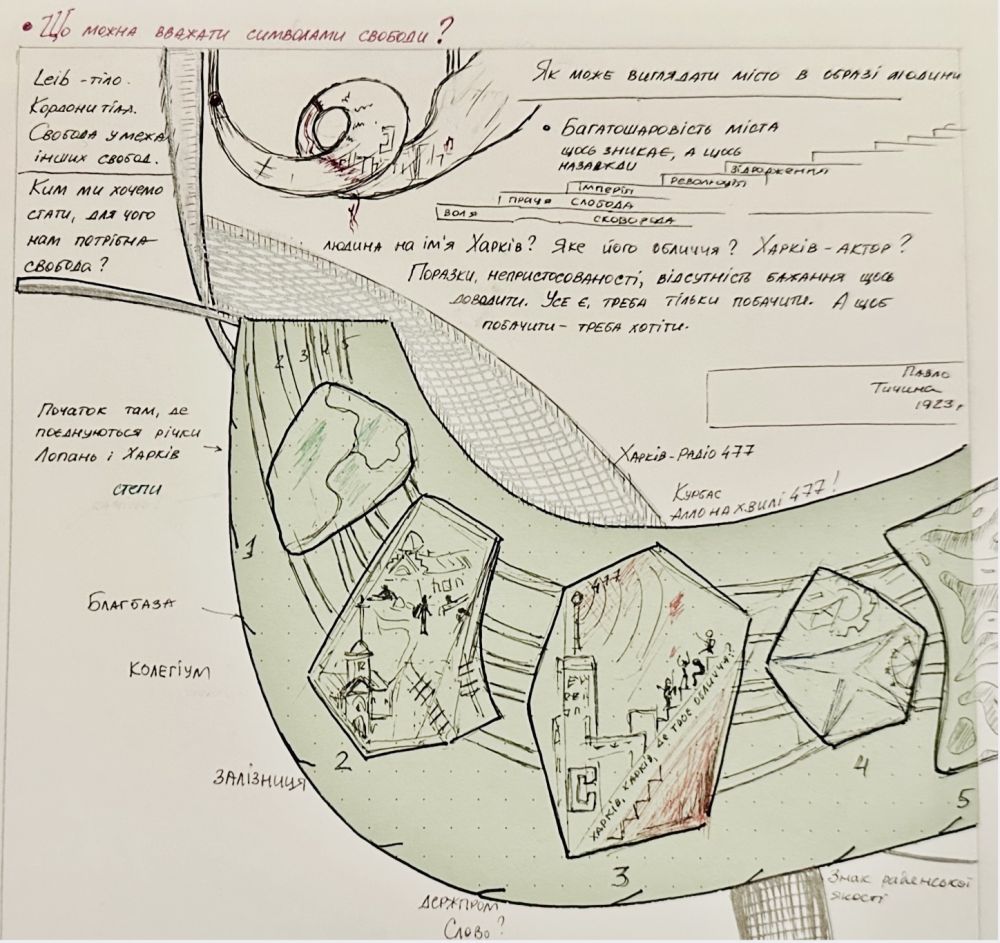 • Що можна вважати символами свободи?
Leib - тіло.
Кордони тіла.
Свобода у межах
інших свобод.
Ким ми хочемо
стати, для чого
нам потрібна
свобода?
Як може виглядати місто в образі людини
• Багатошаровість міста
щось зникає, а щось
назавжди
відродження
революція
імперія
праця слобода
воля
сковорода
людина на ім'я Харків? Яке його обличчя? Харків - актор?
Поразки, непристосованості, відсутність бажання щось
доводити. Усе є, треба тільки побачити. А щоб
побачити - треба хотіти.
Павло
Тичина
1923 р
2 3 4 5
Початок там, де
поєднуються річки
Лопань і Харків
степи
Харків - Радіо 477
Курбас
Алло на хвилі 477!
1
Благбаза
Колегіум
Залізниця
2
477
Харків, Харків, де твоє обличчя?
3
4
5
Держпром
Слово?
Знак радянської
якості